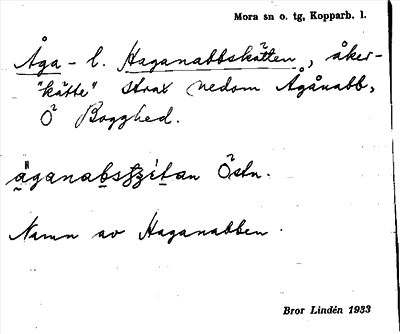 Mora sn o. tg, Kopparb. l.
Åga- l. Haganabbskätten, åker-
"kätte" strax nedom Ågånabb,
Ö Bogghed.
Östn.
Namn av Haganabben.
Bror Lindén 1933